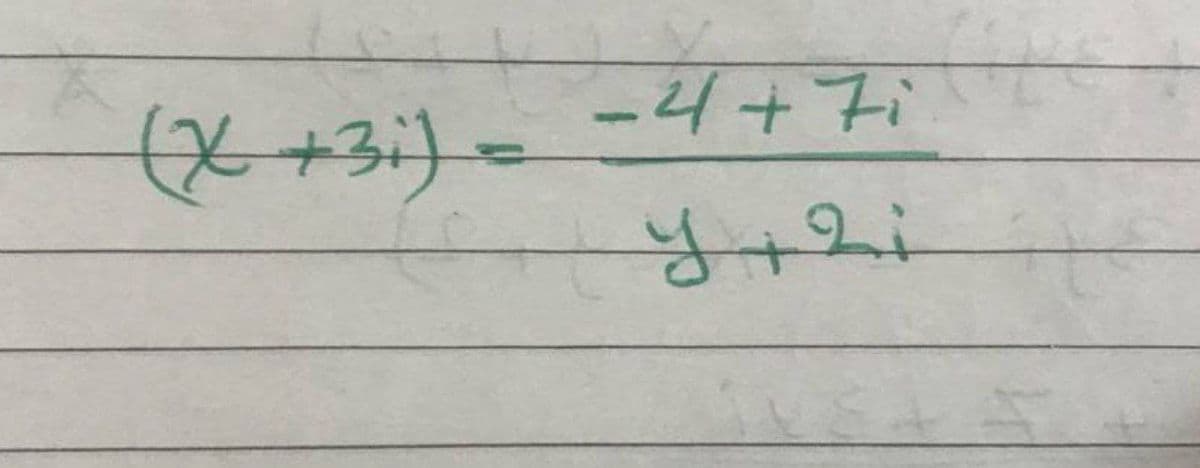 (x + 3i) = -4 + 7i
y + 2i